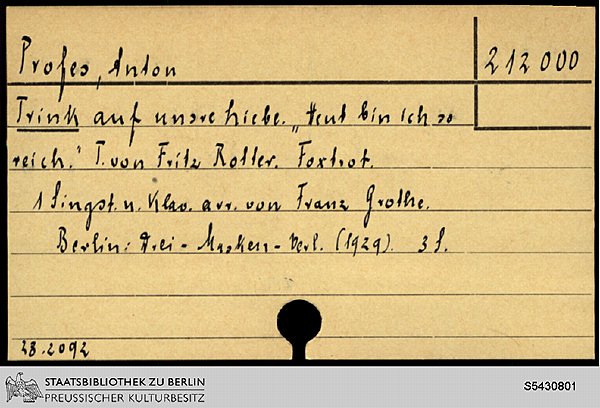 Profes, Anton
212000
Trink auf unsre Liebe. „Heut bin ich so
reich." T. von Fritz Rotter. Foxtrot.
1 Singst. u. Klav. arr. von Franz Grothe.
Berlin: Drei-Masken-Verl. (1929). 3 S.
28.2092
STAATSBIBLIOTHEK ZU BERLIN
PREUSSISCHER KULTURBESITZ
S5430801